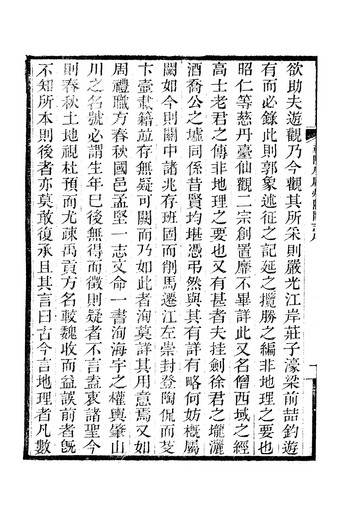 欲助夫遊觀乃今觀其所釆則嚴光江岸莊子濠梁前喆釣遊
有而必錄此則郭象述征之記延之攬勝之編非地理之要也
昭仁等慈丹臺仙觀二宗創置靡不畢詳此又名僧西域之經
高士老君之傳非地理之要也又有甚者夫挂劍徐君之壠灑
酒喬公之墟同係昔賢均堪憑弔然與其有詳有略何妨概屬
闕如今則關中諸兆存班固而削馬遷江左崇封登陶侃而芟
卞壼載籍竝存無疑可闕而乃如此者洵莫詳其用意焉又如
周禮職方春秋國邑孟堅一志文命一書洵海宇之權輿肇山
川之名號必謂生年巳後無得而徵則疑者不言盍衷諸聖今
則春秋土地視杜預而尤疎禹貢方名較魏收而益誤前者旣
不知所本則後者亦莫敢復承且其言曰古今言地理者凡數